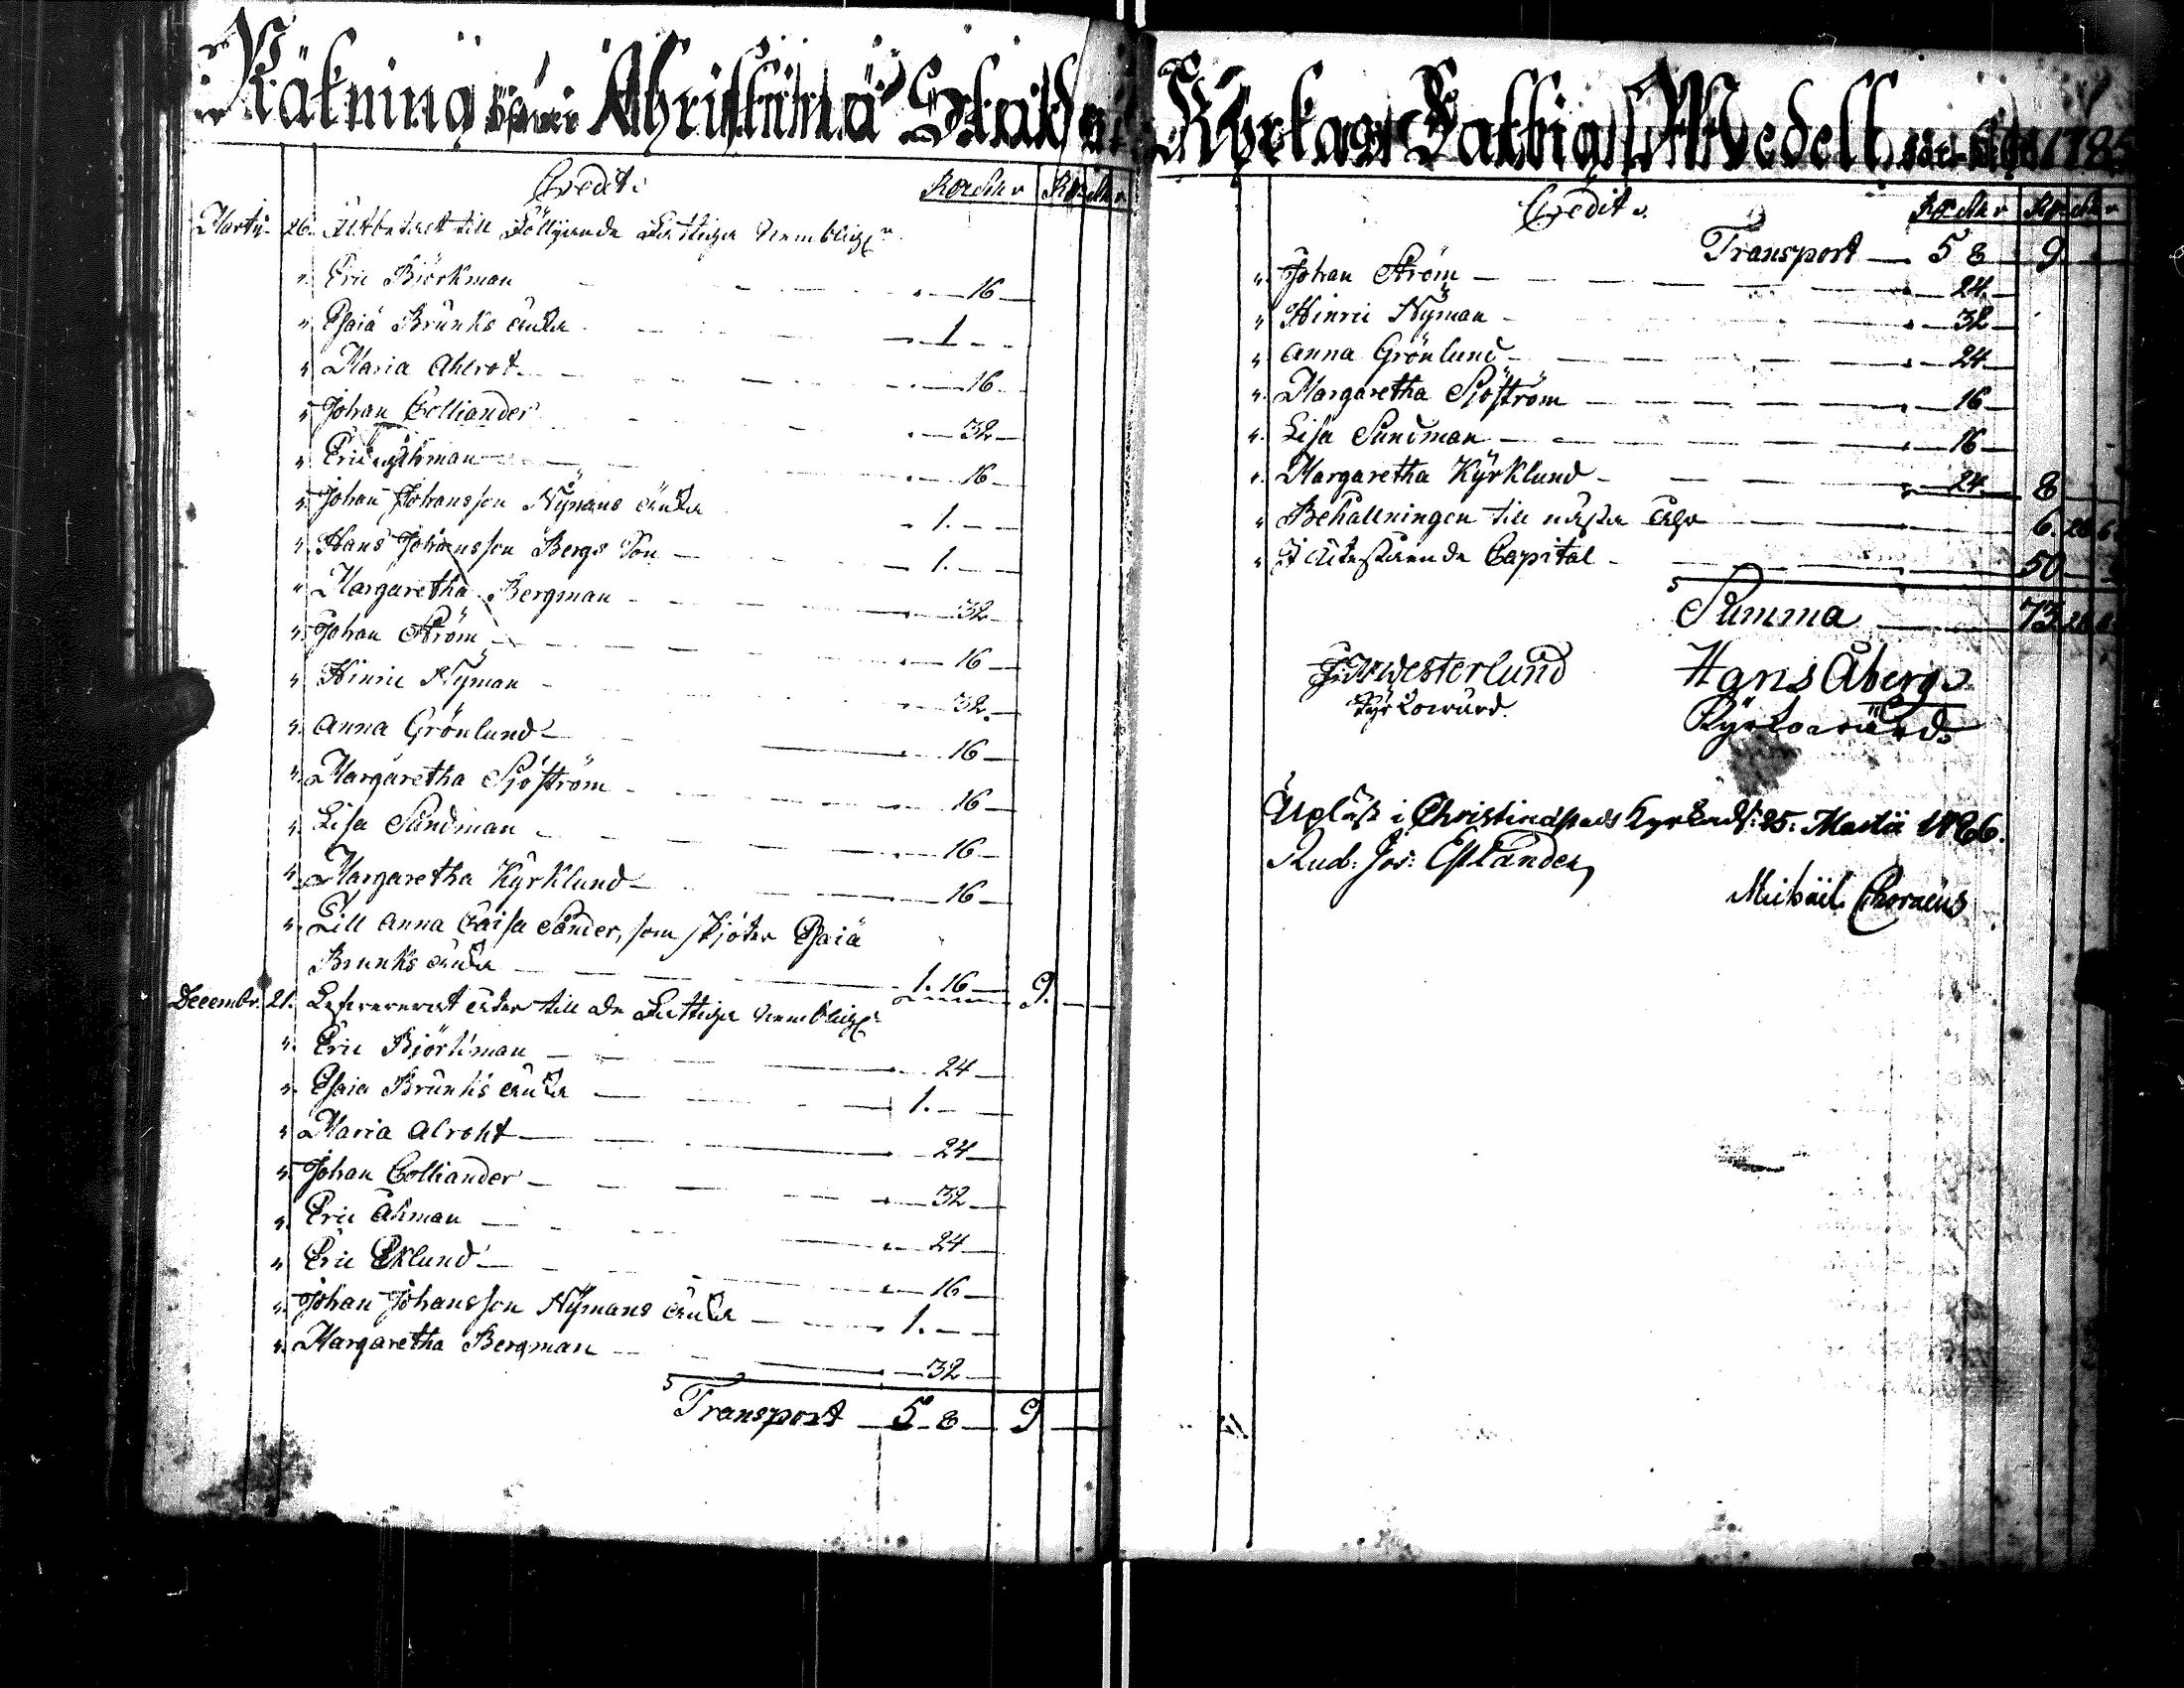 Räkning öfwer Christinæ Stads
Credit. Rdr sk r Rdr sk r
Martii 26. Utbetalt till Följande Fattiga nembligen
" Eric Björkman — 16 —
" Esaiæ Brunks änka — 1 — —
" Maria Ahlrot — 16 —
" Johan Colliander — 32 —
" Eric Åhman — 16 —
" Johan Johansson Nÿmans änka — 1. — —
" Hans Johansson Bergs Son — 1. — —
" Margaretha Bergman — 32 —
" Johan Ström — 16 —
" Hinric Nÿman — 32 —
" Anna Grönlund — 16 —
" Margaretha Sjöström — 16 —
" Lisa Sundman — 16 —
" Margaretha Kÿrklund — 16 —
" Till Anna Caisa Sander, som skjöter Esaiæ
Brunks änka — 1. 16 — 9. —
Decembr. 21. Lefvererat åter till de Fattiga nembligen
" Eric Björkman — 24 —
" Esaiæ Brunks änka — 1. — —
" Maria Alroht — 24 —
" Johan Colliander — 32 —
" Eric Åhman — 24 —
" Eric Eklund — 16 —
" Johan Johansson Nÿmans änka — 1. — —
" Margaretha Bergman — 32 —
Transport — 5 8 — 9 —
Kyrkas Fattig Medell för åhr 1785
Credit. Rdr sk r Rdr sk r
Transport — 5 8 — 9 —
" Johan Ström — 24 —
" Hinric Nÿman — 32 —
" Anna Grönlund — 24 —
" Margaretha Sjöström — 16 —
" Lisa Sundman — 16 —
" Margaretha Kÿrklund — 24 — 8 —
" Behållningen till nästa åhr — 6. 26 6.
" I utestående Capital — 50 —
Summa — 73 26 6.
Westerlund Hans Åberg
Kyrkowärd. Kyrkowärd.
Upläst i Christinæstads Kyrka d: 25. Martii 1786.
Rud: Jos: Estlander,
Michäel Choræus